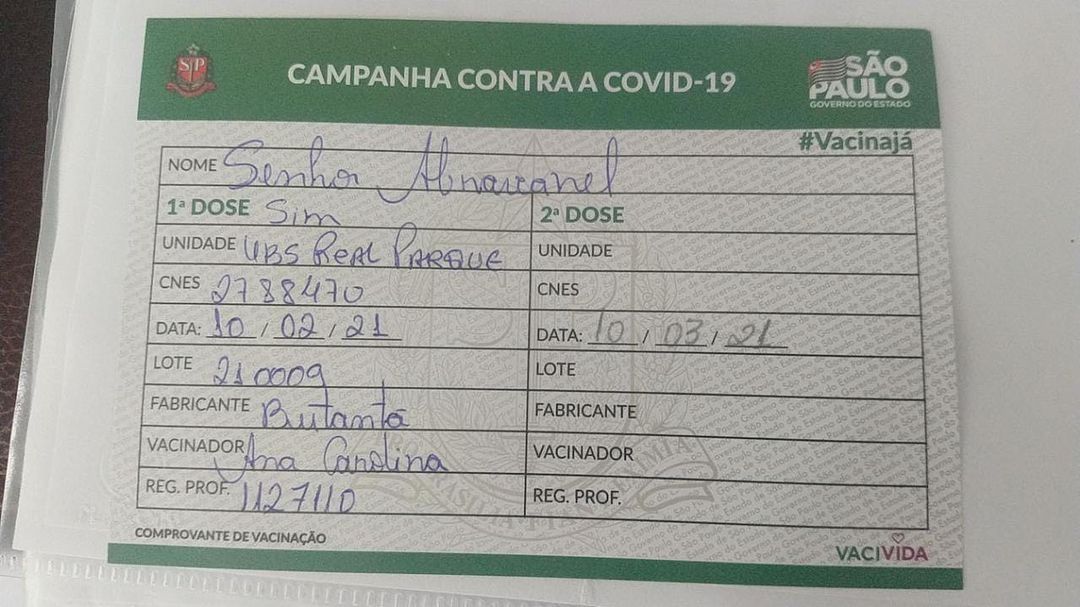 SP
CAMPANHA CONTRA A COVID-19
SÃO PAULO
GOVERNO DO ESTADO
#Vacinajá
NOME Senhor Abravanel
1ª DOSE Sim
UNIDADE UBS REAL PARQUE
CNES 2788470
DATA: 10 / 02 / 21
LOTE 210009
FABRICANTE Butantã
VACINADOR Ana Carolina
REG. PROF. 1127110
2ª DOSE
UNIDADE
CNES
DATA: 10 / 03 / 21
LOTE
FABRICANTE
VACINADOR
REG. PROF.
COMPROVANTE DE VACINAÇÃO
VACIVIDA